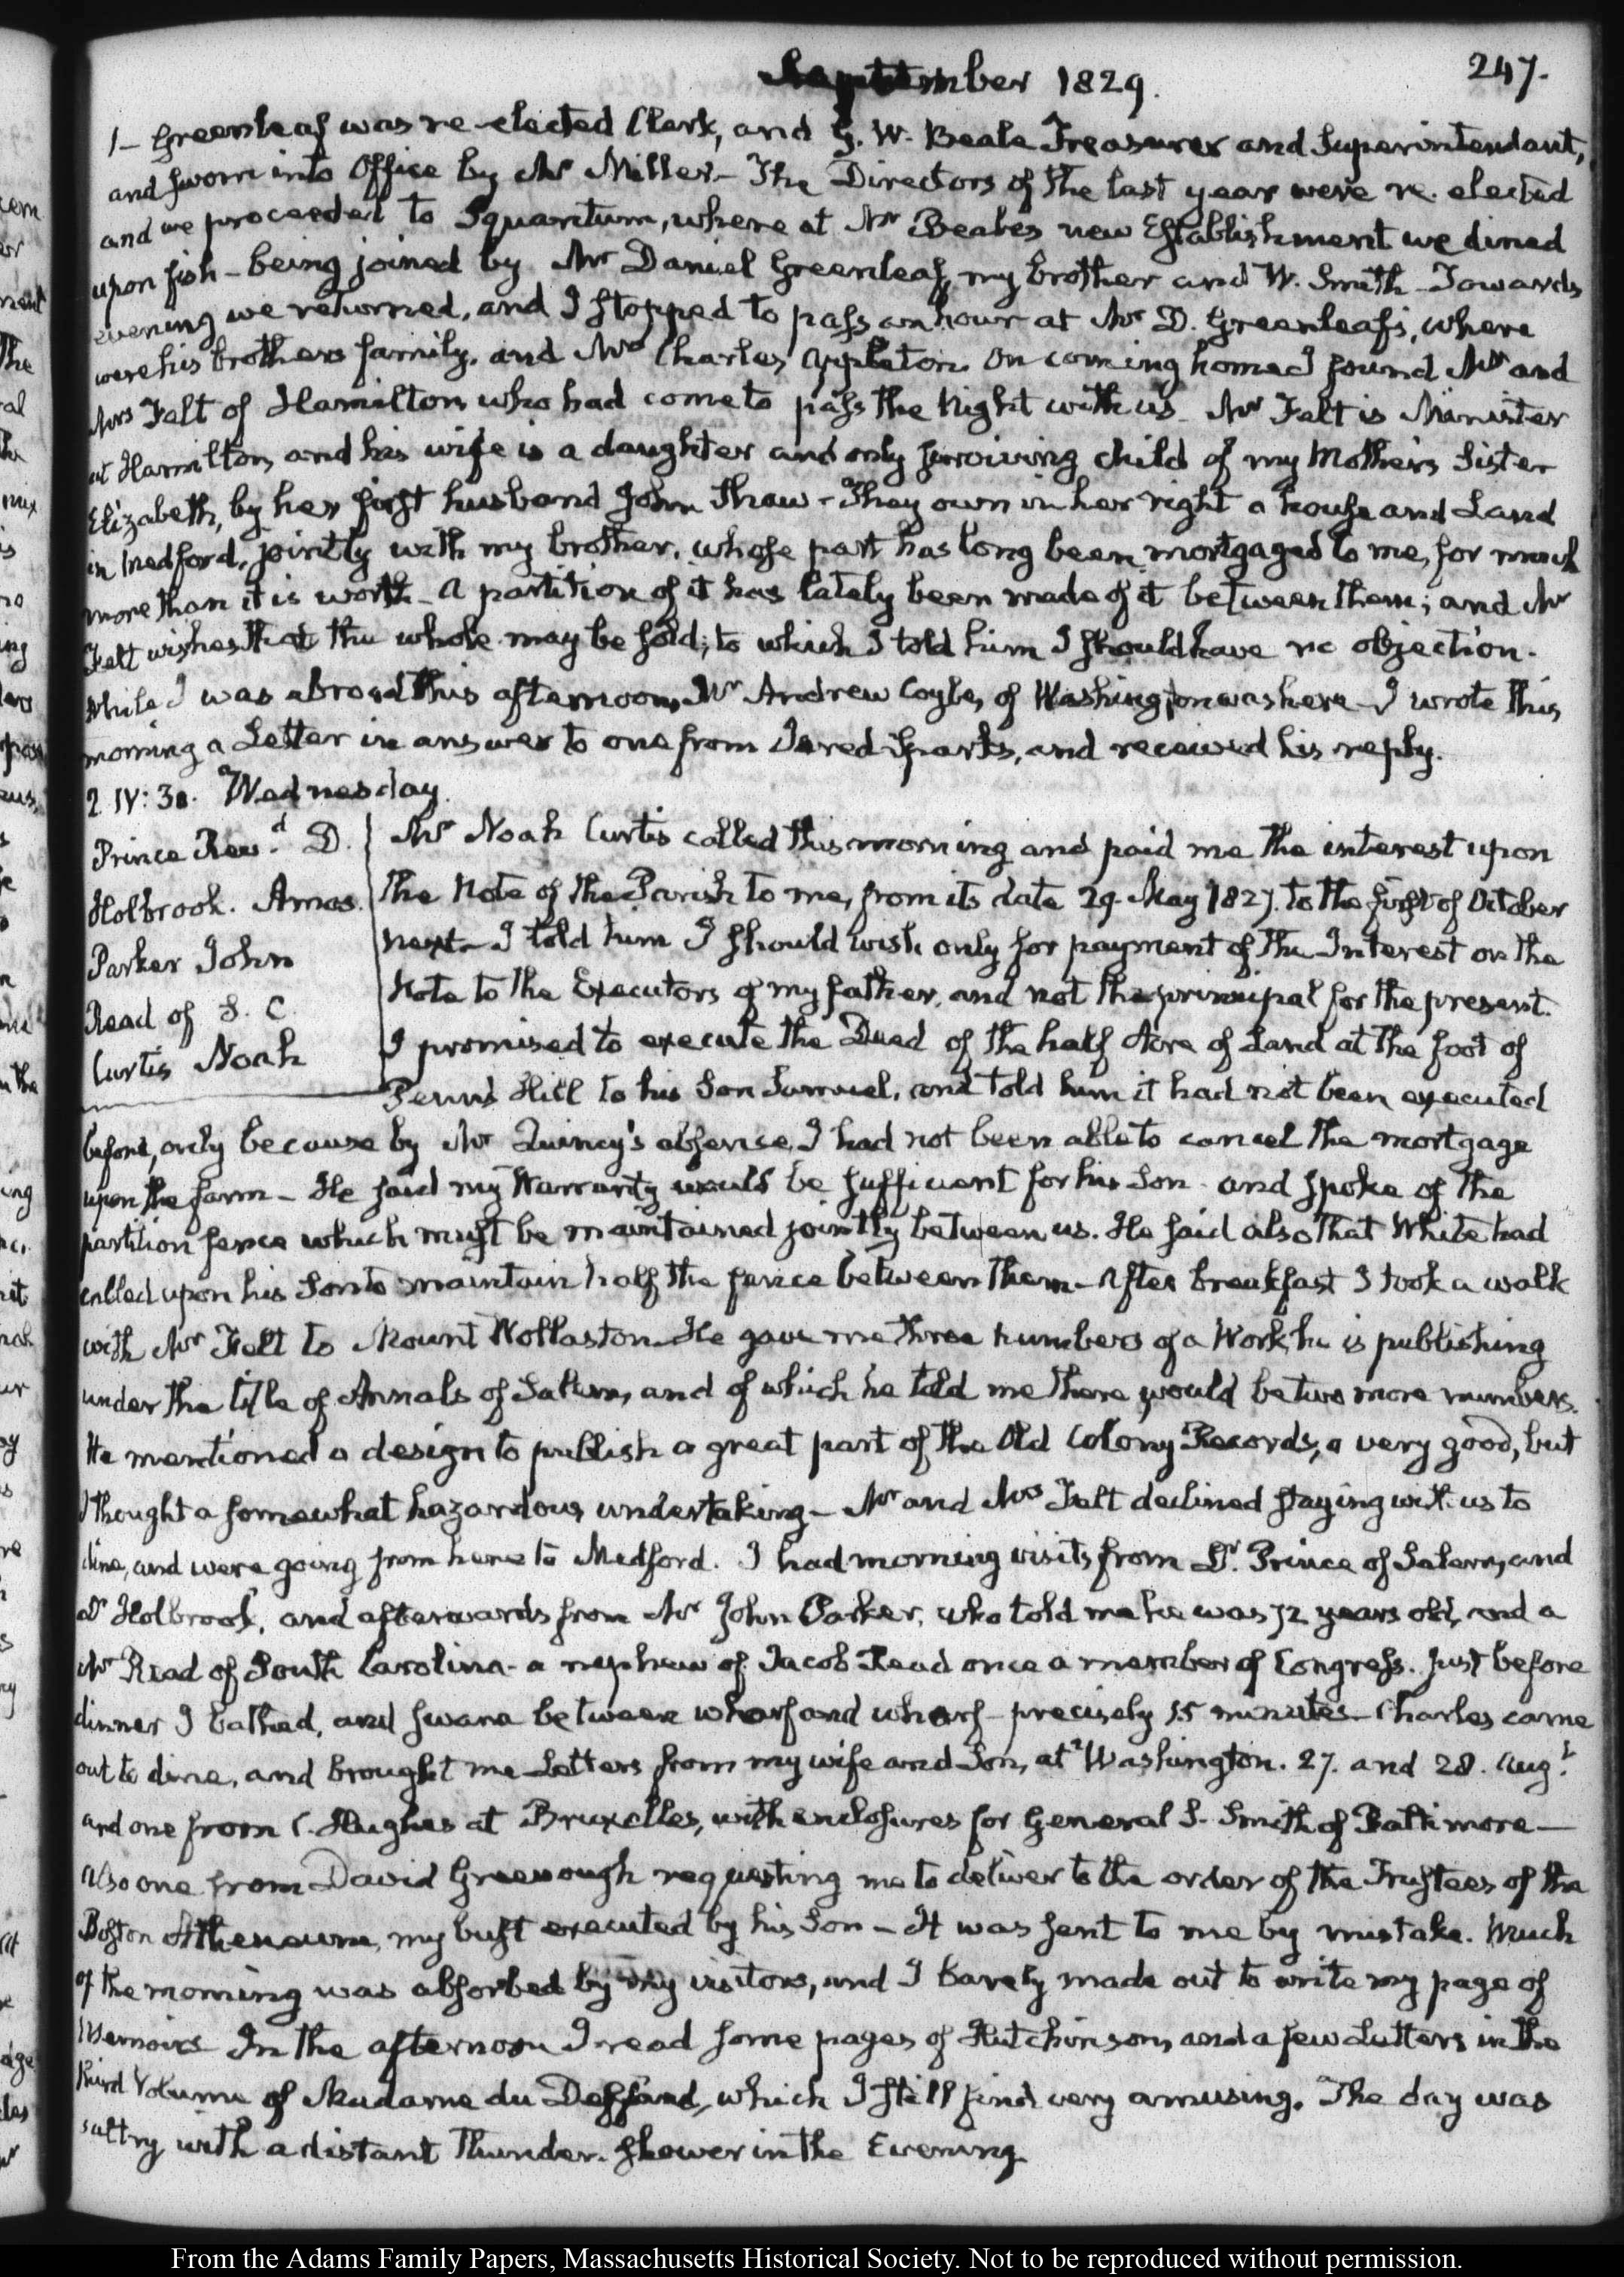 September 1829. 247.
1– Greenleaf was re-elected Clerk, and G. W. Beale Treasurer and Superintendant,
and sworn into Office by Mr Miller– The Directors of the last year were re-elected
and we proceeded to Squantum, where at Mr Beales new Establishment we dined
upon fish– being joined by Mr Daniel Greenleaf, my brother and W. Smith– Towards
evening we returned, and I stopped to pass an hour at Mr D. Greenleaf's, where
were his brothers family, and Mrs Charles Appleton. On coming home I found Mr and
Mrs Felt of Hamilton who had come to pass the Night with us– Mr Felt is Minister
at Hamilton, and his wife is a daughter and only surviving child of my Mother's Sister
Elizabeth, by her first husband John Shaw– They own in her right a house and Land
in Medford, jointly with my brother, whose part has long been mortgaged to me, for much
more than it is worth– A partition of it has lately been made of it between them; and Mr
Felt wishes that the whole may be sold; to which I told him I should have no objection.
While I was abroad this afternoon, Mr Andrew Coyle, of Washington was here– I wrote this
morning a Letter in answer to one from Jared Sparks, and received his reply.
2. IV: 30. Wednesday.
Prince Revd. D. Mr Noah Curtis called this morning and paid me the interest upon
Holbrook. Amos. the Note of the Parish to me, from its date 29. May 1827. to the first of October
Parker John next– I told him I should wish only for payment of the Interest on the
Read of S. C. Note to the Executors of my father, and not the principal for the present.
Curtis Noah I promised to execute the Deed of the half Acre of Land at the foot of
Penn's Hill to his Son Samuel, and told him it had not been executed
before, only because by Mr Quincy's absence, I had not been able to cancel the mortgage
upon the farm– He said my Warranty would be sufficient for his Son– and spoke of the
partition fence which must be maintained jointly between us. He said also that White had
called upon his Son to maintain half the fence between them– After breakfast I took a walk
with Mr Felt to Mount Wollaston– He gave me three numbers of a Work, he is publishing
under the title of Annals of Salem, and of which he told me there would be two more numbers.
He mentioned a design to publish a great part of the Old Colony Records, a very good, but
I thought a somewhat hazardous undertaking– Mr and Mrs Felt declined staying with us to
dine, and were going from hence to Medford. I had morning visits from Dr. Prince of Salem, and
Dr Holbrook, and afterwards from Mr John Parker, who told me he was 72 years old, and a
Mr Read of South Carolina– a nephew of Jacob Read once a member of Congress. Just before
dinner I bathed, and swam between wharf and wharf– precisely 15 minutes– Charles came
out to dine, and brought me Letters from my wife and Son, at Washington. 27. and 28. Augt.
and one from C. Hughes at Bruxelles, with enclosures for General S. Smith of Baltimore–
also one from David Greenough requesting me to deliver to the order of the Trustees of the
Boston Athenaeum, my bust executed by his Son– It was sent to me by mistake. Much
of the morning was absorbed by my visitors, and I barely made out to write my page of
Memoirs– In the afternoon I read some pages of Hutchinson, and a few Letters in the
third Volume of Madame du Deffand, which I still find very amusing. The day was
sultry with a distant Thunder-shower in the Evening.
From the Adams Family Papers, Massachusetts Historical Society. Not to be reproduced without permission.